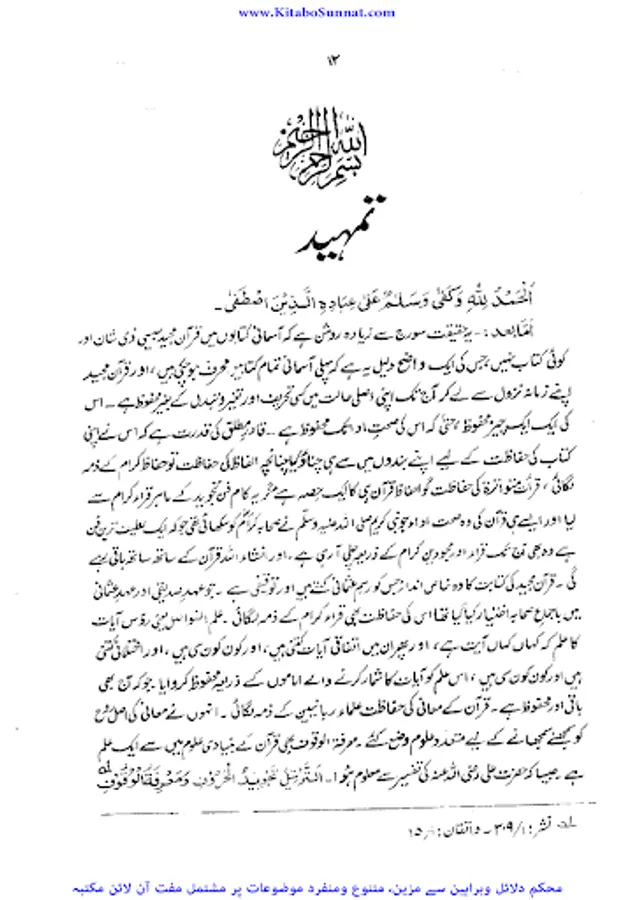 www.KitaboSunnat.com
۱۲
بسم اللہ الرحمن الرحیم
تمہید
اَلْحَمْدُ لِلّٰہِ وَکَفٰی وَسَلَامٌ عَلٰی عِبَادِہِ الَّذِیْنَ اصْطَفٰی۔
امّا بعد:۔ یہ حقیقت سورج سے زیادہ روشن ہے کہ آسمانی کتابوں میں قرآن مجید جیسی ذی شان اور
کوئی کتاب نہیں، جس کی ایک واضح دلیل یہ ہے کہ پہلی آسمانی تمام کتابیں محرف ہو چکی ہیں، اور قرآن مجید
اپنے زمانہ نزول سے لے کر آج تک اپنی اصلی حالت میں کسی تحریف اور تغیر و تبدل کے بغیر محفوظ ہے۔ اس
کی ایک ایک چیز محفوظ، حتیٰ کہ اس کی صحتِ ادا تک محفوظ ہے۔ قادرِ مطلق کی قدرت ہے کہ اس نے اپنی
کتاب کی حفاظت کے لیے اپنے بندوں میں سے ہی چناؤ کیا چنانچہ الفاظ کی حفاظت تو حفاظ کرام کے ذمہ
لگائی، قرآتِ متواترۃ کی حفاظت گو الفاظ قرآن ہی کا ایک حصہ ہے مگر یہ کام فن تجوید کے ماہر قراء کرام سے
لیا اور ایسے ہی قرآن کی وہ صحت ادا جو نبی کریم صلی اللہ علیہ وسلم نے صحابہ کرام کو سکھائی تھی جو کہ ایک لطیف ترین فن
ہے وہ بھی آج تک قراء اور مجودین کرام کے ذریعہ چلی آ رہی ہے۔ اور انشاء اللہ قرآن کے ساتھ ساتھ باقی رہے
گی۔ قرآن مجید کی کتابت کا وہ خاص انداز جس کو رسم عثمانی کہتے ہیں اور توقیفی ہے۔ جو عہد صدیقی اور عہد عثمانی
میں باجماع صحابہ اختیار کیا گیا تھا اس کی حفاظت بھی قراء کرام کے ذمہ لگائی۔ علم الفواصل یعنی رؤس آیات
کا علم کہ کہاں کہاں آیت ہے، اور پھر ان میں اتفاقی آیات کتنی ہیں، اور کون کون سی ہیں، اور اختلافی کتنی
ہیں اور کون کون سی ہیں، اس علم کو آیات کا شمار کرنے والے اماموں کے ذریعہ محفوظ کروایا جو کہ آج بھی
باقی اور محفوظ ہے۔ قرآن کے معانی کی حفاظت علماء ربانیین کے ذمہ لگائی۔ انہوں نے معانی کی اصل شرح
کو سمجھنے سمجھانے کے لیے متعدد علوم وضع کئے۔ معرفۃ الوقوف بھی قرآن کے بنیادی علوم میں سے ایک علم
ہے جیسا کہ حضرت علی رضی اللہ عنہ کی تفسیر سے معلوم ہوا۔ اَلتَّرْتِیْلُ تَجْوِیْدُ الْحُرُوْفِ وَمَعْرِفَۃُ الْوُقُوْفِ
نشر: ۳۰۹/۱۔ واتقان:
محکم دلائل وبراہین سے مزین، متنوع ومنفرد موضوعات پر مشتمل مفت آن لائن مکتبہ